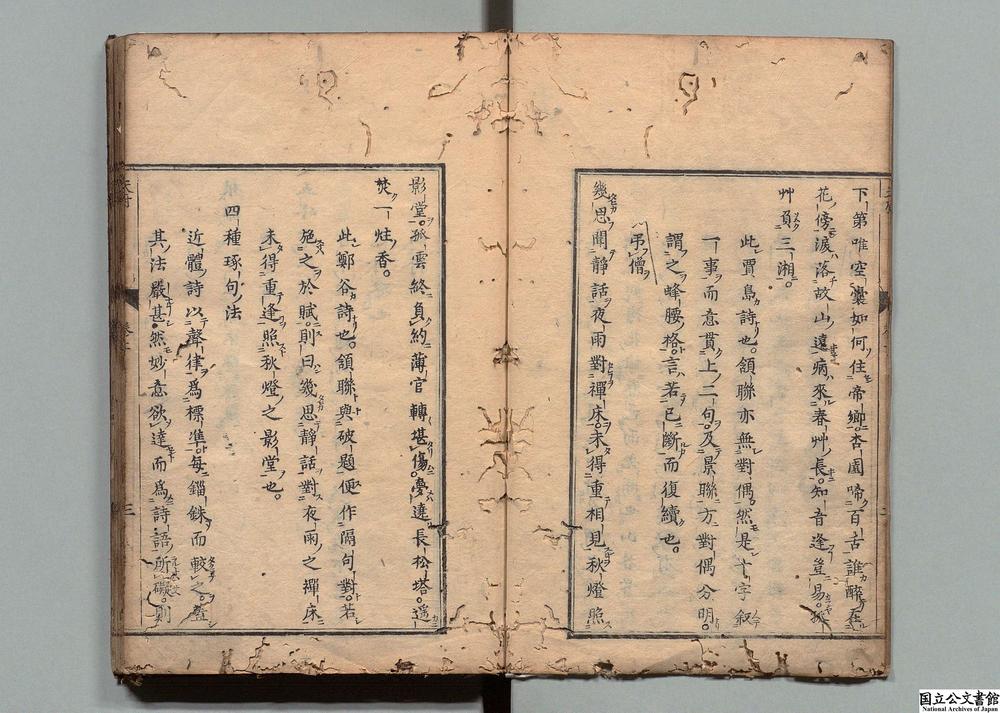 下第唯空囊如何住帝鄉杏園啼百舌誰醉在
花傍淚落故山遠病來春艸長知音逢豈易孤
艸負三湘
此賈島詩也頷聯亦無對偶然是十字叙
一事而意貫上二句及景聯方對偶分明
謂之蜂腰格言若已斷而復續也
弔僧
幾思聞靜話夜雨對禪床未得重相見秋燈照
影堂孤雲終負約薄官轉堪傷夢遶長松塔遥
焚一炷香
此鄭谷詩也頷聯與破題便作隔句對若
施之於賦則曰幾思靜話對夜雨之禪床
未得重逢照秋燈之影堂也
四種琢句法
近體詩以聲律爲標準每錙銖而較之蓋
其法嚴甚然妙意欲達而爲詩語所礙則
三
国立公文書館
National Archives of Japan